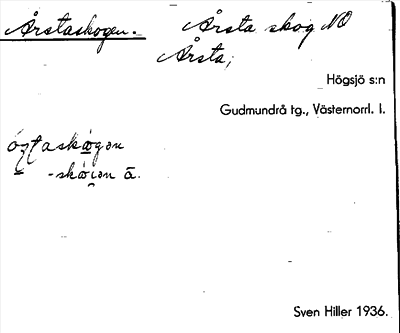 Årstaskogen. Årsta skog NO
Årsta,
Högsjö s:n
Gudmundrå tg., Västernorrl. l.
-skɷ̀iən ā.
Sven Hiller 1936.